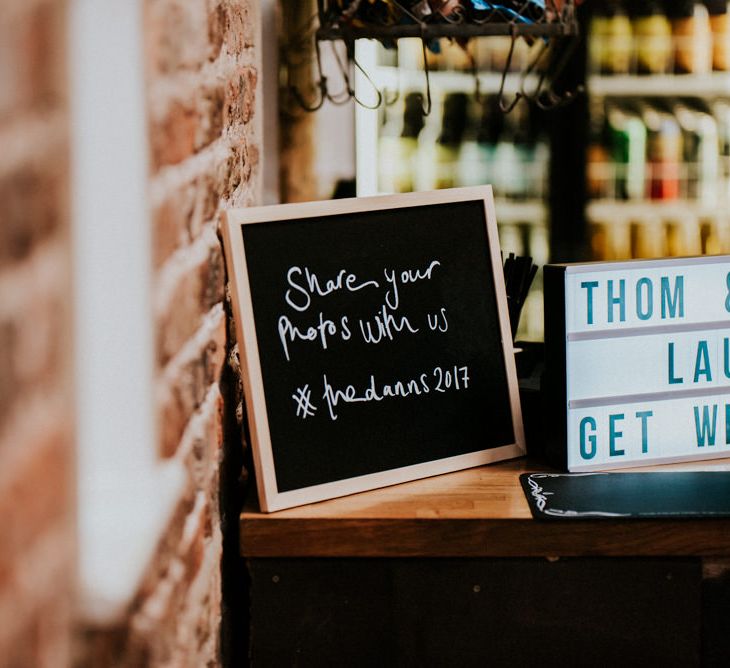 Share your
photos with us
# thedanns2017
THOM &
LAU
GET WE